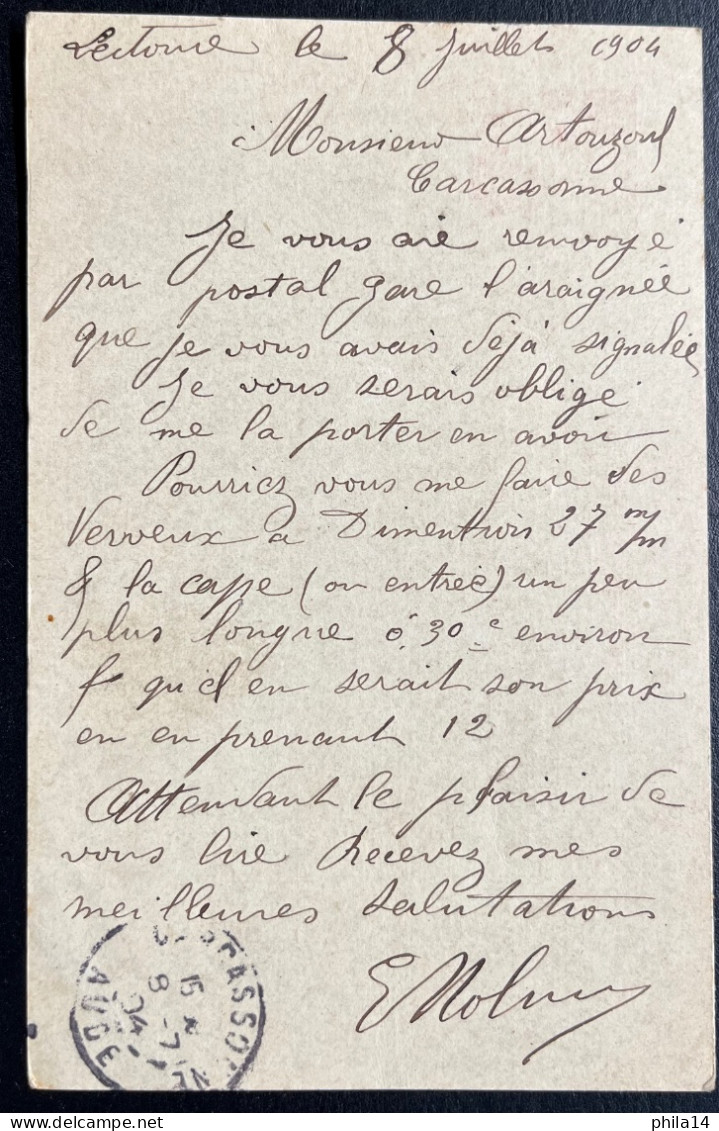 Lectoure le 8 Juillet 1904
Monsieur Artouzoul
Carcassonne
Je vous aie renvoyé
par postal gare l'araignée
que je vous avais déjà signalée
Je vous serais obligé
de me la porter en avoir
Pourriez vous me faire des
Verveux a Dimentions 27 m/m
& la cape (ou entrée) un peu
plus longue 0.30 c environ
& qu'el en serait son prix
en en prenant 12
Attendant le plaisir de
vous lire Recevez mes
meilleures salutations
CARCASSONNE
15
8 -7
04
AUDE
philal4